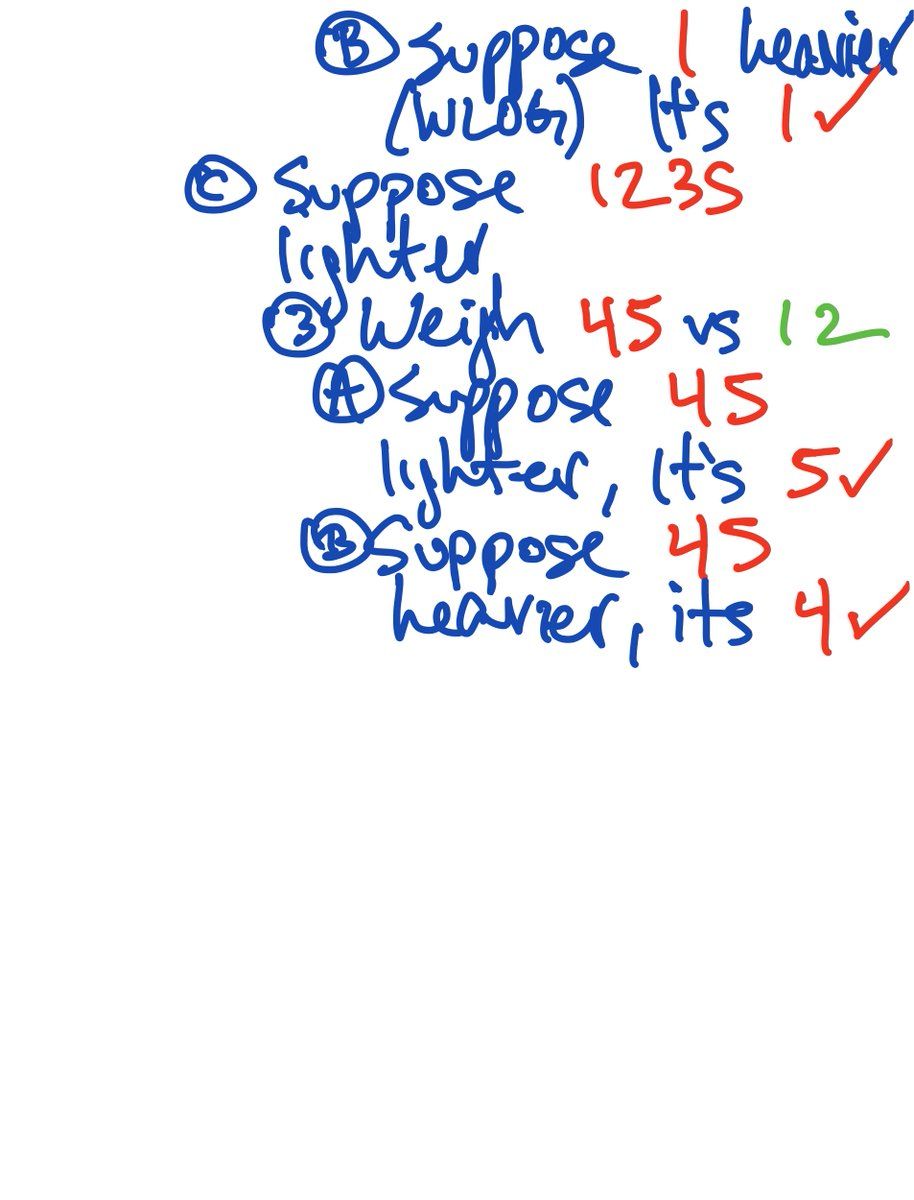 B Suppose 1 heavier
(WLOG) It's 1 ✓
C Suppose 1235
lighter
3 Weigh 45 vs 12
A Suppose 45
lighter, It's 5 ✓
B Suppose 45
heavier, its 4 ✓